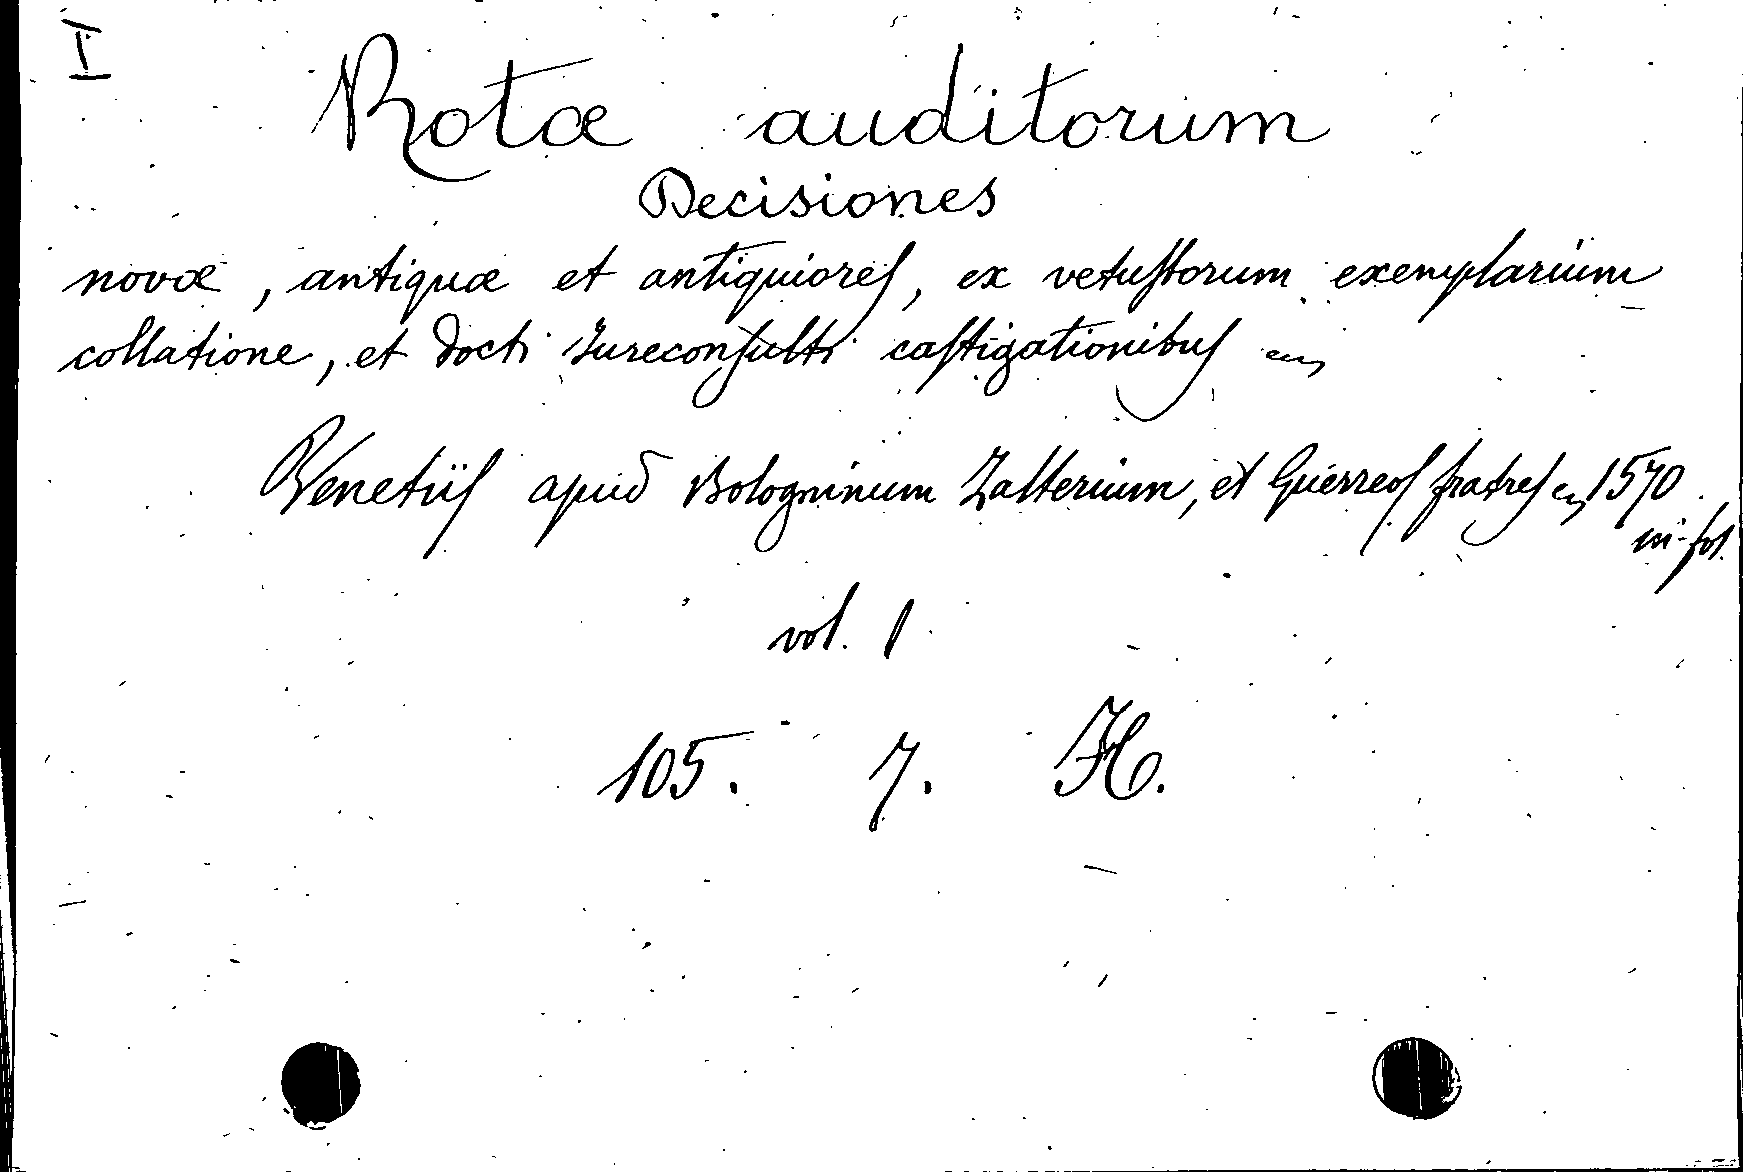 I
Rotæ auditorum
Decisiones
novæ, antiquæ et antiquiores, ex vetustorum exemplarium
collatione, et docti Jureconsulti castigationibus
Venetiis apud Bologninum Zalterium, et Guerreos fratres 1570.
in-fol.
vol. 1
105. 7. H.